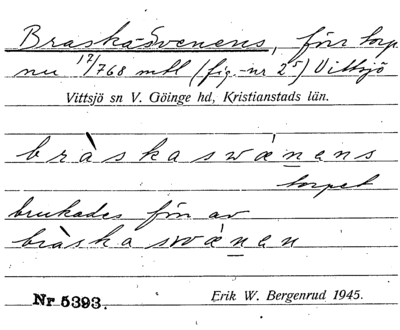 Braska-Svenens, förr torp
nu 17/768 mtl (fig.-nr 2⁵) Vittsjö
Vittsjö sn V. Göinge hd, Kristianstads län.
bràskaswǽnens
torpet
brukades förr av
bràskaswǽnen
Nr 5393.
Erik W. Bergenrud 1945.